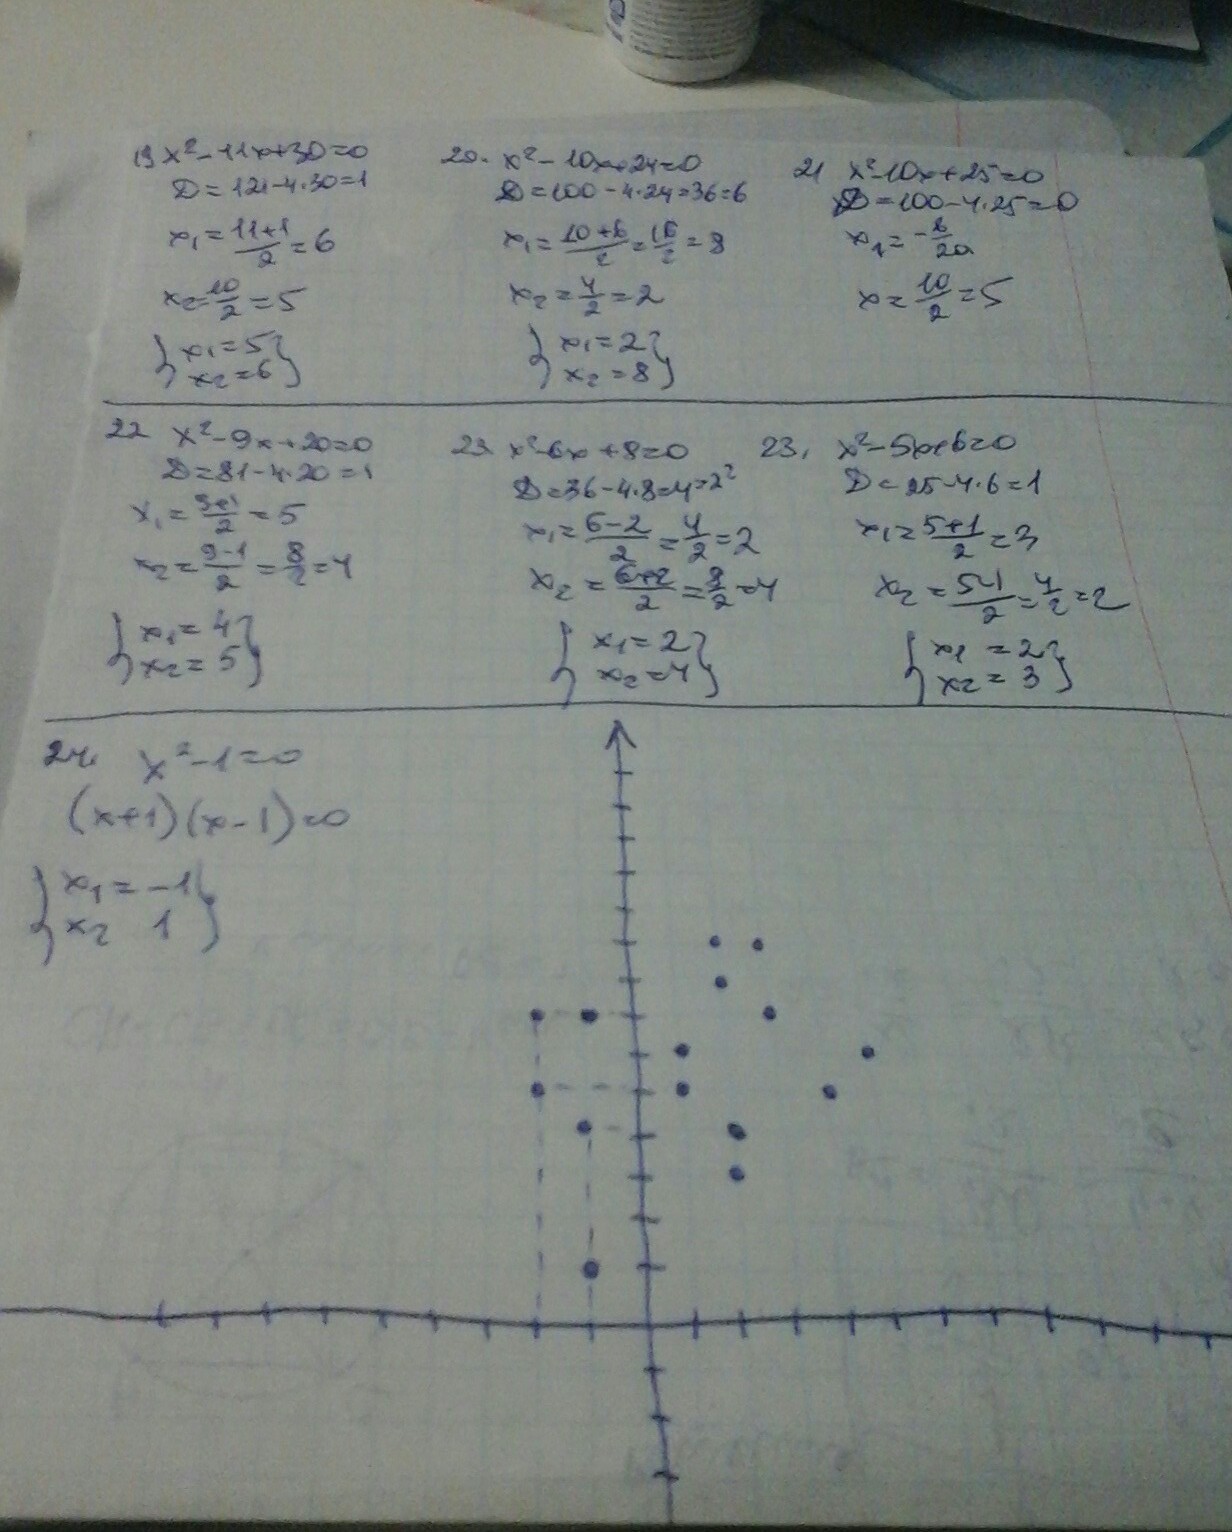 19 x²-11x+30=0
D=121-4·30=1
x₁=11+1/2=6
x₂=10/2=5
{x₁=5
x₂=6}
20. x²-10x+24=0
D=100-4·24=36=6
x₁=10+6/2=16/2=8
x₂=4/2=2
{x₁=2
x₂=8}
21 x²-10x+25=0
D=100-4·25=0
x₁=-b/2a
x=10/2=5
22 x²-9x+20=0
D=81-4·20=1
x₁=9+1/2=5
x₂=9-1/2=8/2=4
{x₁=4
x₂=5}
23. x²-6x+8=0
D=36-4·8=4=2²
x₁=6-2/2=4/2=2
x₂=6+2/2=8/2=4
{x₁=2
x₂=4}
23. x²-5x+6=0
D=25-4·6=1
x₁=5+1/2=3
x₂=5-1/2=4/2=2
{x₁=2
x₂=3}
24. x²-1=0
(x+1)(x-1)=0
{x₁=-1
x₂ 1}